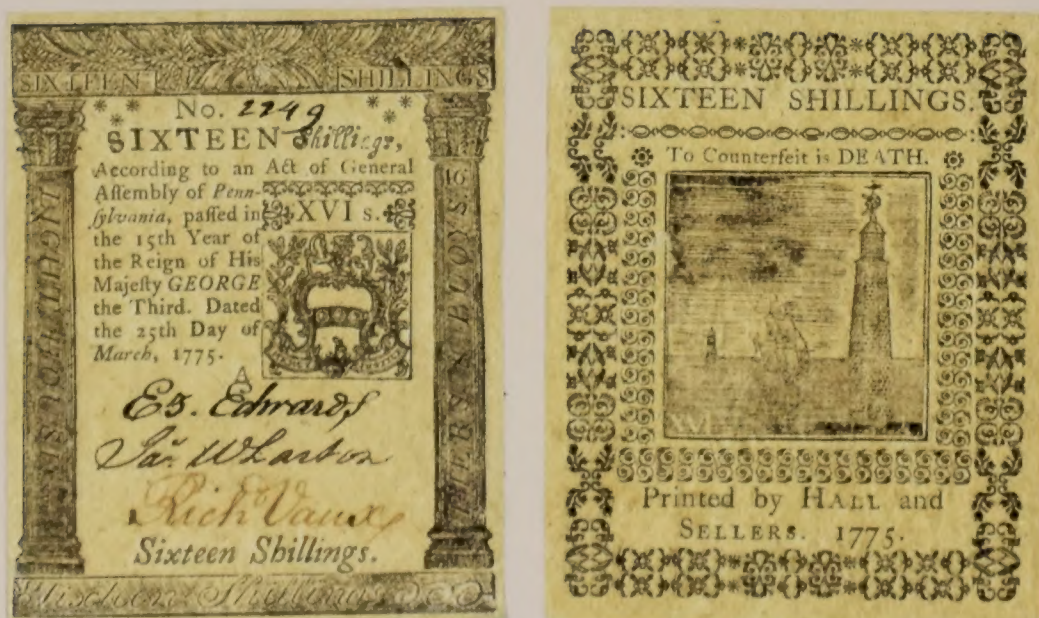 SIXTEEN SHILLINGS
No. 2249
SIXTEEN Shillings,
According to an Act of General
Aſſembly of Penn-
ſylvania, paſſed in
XVI s.
the 15th Year of
the Reign of His
Majeſty GEORGE
the Third. Dated
the 25th Day of
March, 1775.
A
Ed. Edwards
Jaˢ. Wharton
Rich Vaux
Sixteen Shillings.
Sixteen Shillings
SIXTEEN SHILLINGS.
To Counterfeit is DEATH.
XVI
Printed by HALL and
SELLERS. 1775.